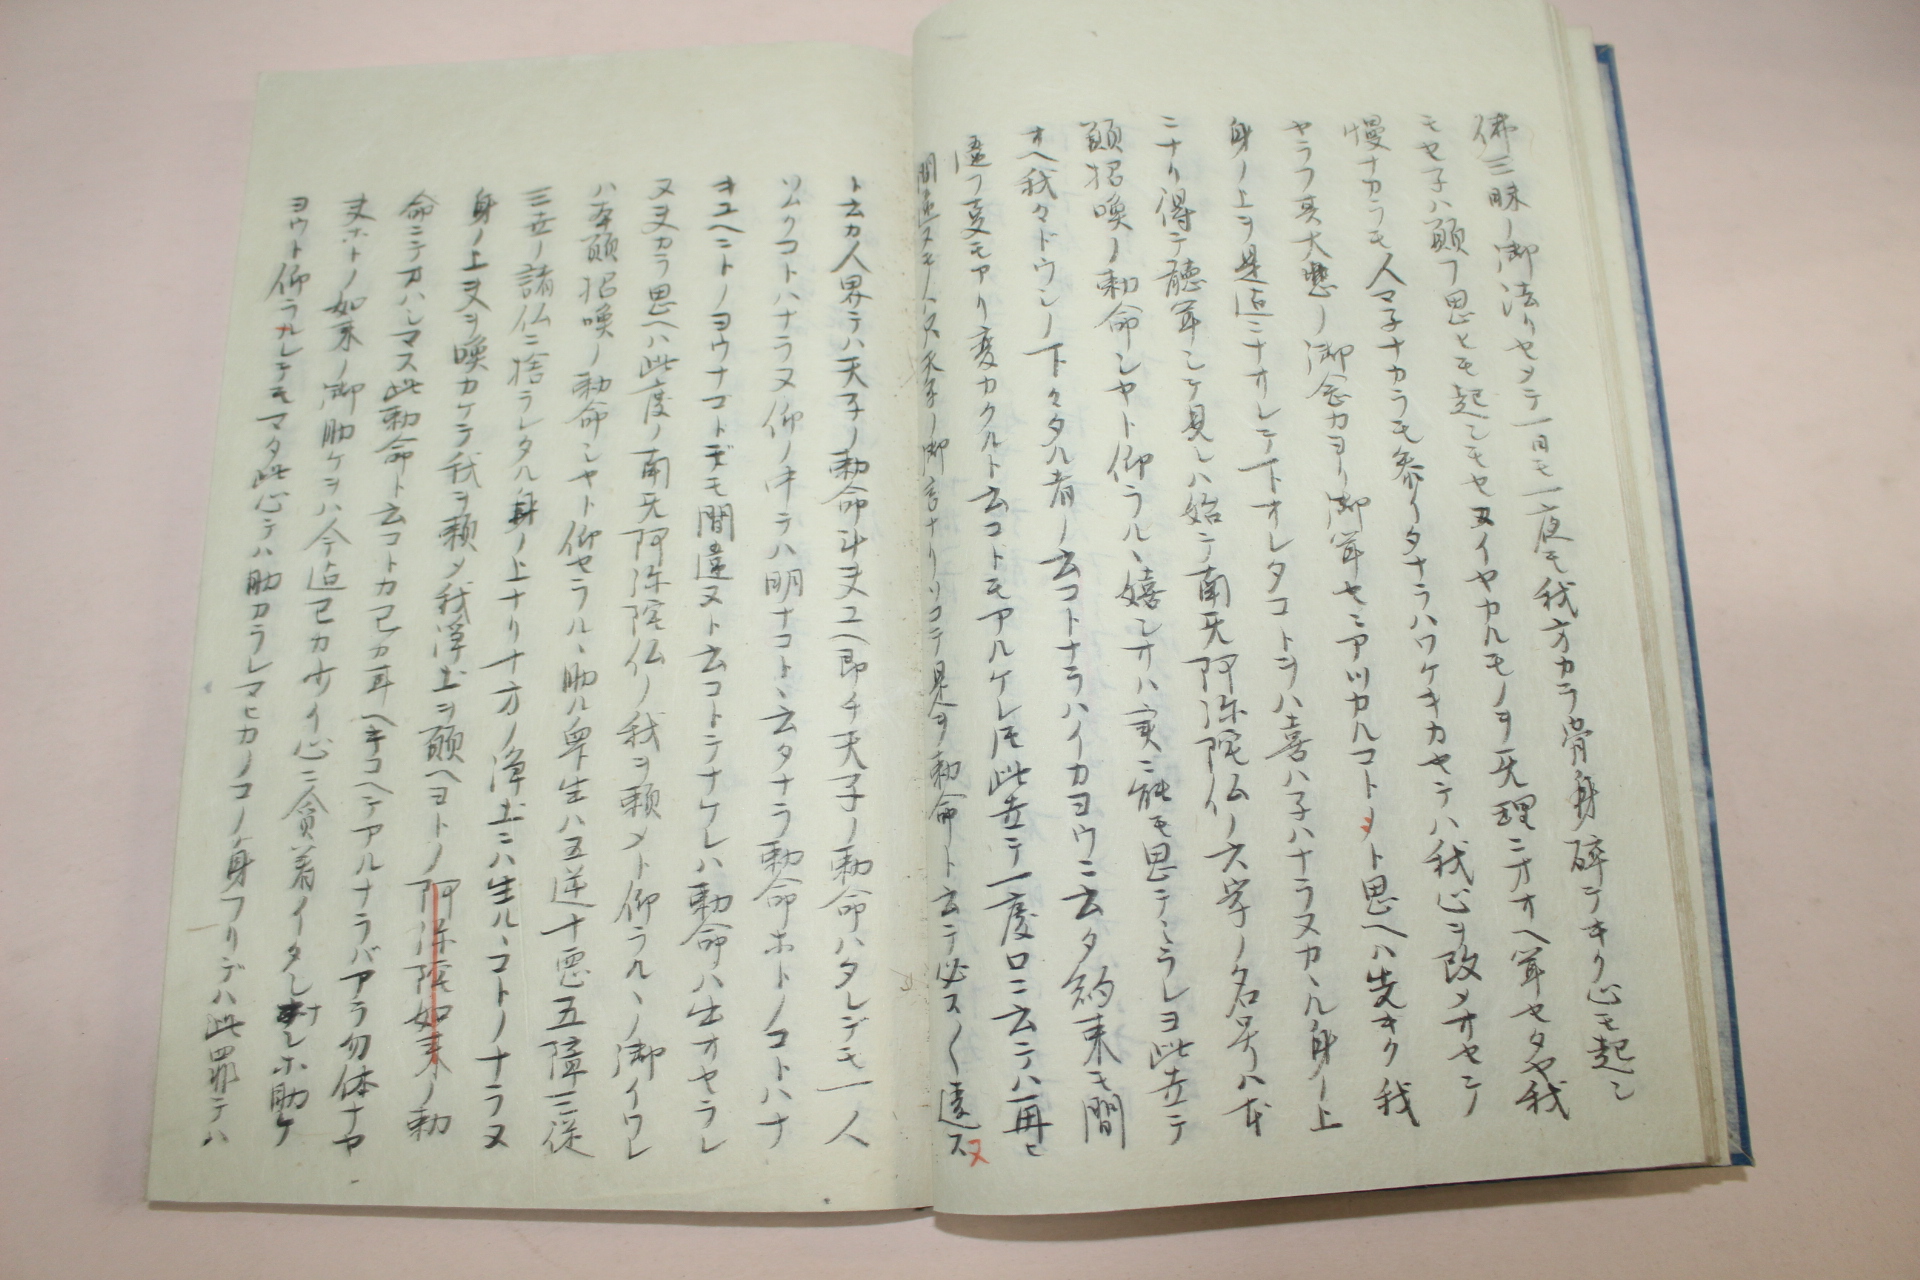 佛三昧ノ御法リセメテ一日モ一夜モ我方カラ骨身碎テキク心モ起シ
モセ子ハ願フ思ヒモ起シモセヌイヤカルモノヲ旡理ニオオヘ聟セタヤ我
慢ナカラモ人マ子ナカラモ参リタナラハワケキカセテハ我心ヲ改メオセン
ヤラフ其大悲ノ御念力ヨリ御聟セニアツカルコトヲト思ヘハ先キク我
身ノ上ヲ是迠ニナオレテ下オレタコトヲハ喜ハ子ハナラヌカヽル身ノ上
ニナリ得テ聴聞シテ見レハ始テ南旡阿弥陀仏ノ六字ノ名号ハ本
願招喚ノ勅命シヤト仰ラルヽ嬉シオハ実ニ能モ思テミラレヨ此立テ
オヘ我々ドウシノ下々タル者ノ云コトナラハイカヨウニ云タ約束モ間
違フ叓モアリ変カクルト云コトモアルケレ𪜈此立テ一度口ニ云テハ再ヒ
間違スモノハ天子ノ御言ナリソコテ是ヲ勅命ト云テ必ス〱違ヌ
ト云カ人界テハ天子ノ勅命斗丈ユヘ即チ天子ノ勅命ハタレデモ一人
ソムクコトハナラヌ仰ノ中テハ明ナコトヽ云タナラ勅命ホトノコトハナ
キユヘニトノヨウナコトデモ間違ヌト云コトテナケレハ勅命ハ出オヤラレ
ヌ丈カラ思ヘハ此度ノ南旡阿弥陀仏ノ我ヲ頼メト仰ラルヽノ御イワレ
ハ本願招喚ノ勅命シヤト仰セラルヽ助ル衆生ハ五逆十悪五障三従
三世ノ諸仏ニ捨ラレタル身ノ上ナリ十方ノ浄土ニハ生ルヽコトノナラヌ
身ノ上丈ヲ喚カケテ我ヲ頼メ我浄土ヲ願ヘヨトノ阿弥陀如来ノ勅
命ニテオハシマス此勅命ト云コトカ己カ耳ヘキコヘテアルナラバアラ勿体ナヤ
丈ホトノ如来ノ御助ケヲハ今迠己カ少イ心ニ貪着イタシ
ヨウト仰ラルレテモマタ此心テハ助カラレマヒカノコノ身フリデハ此罪テハ